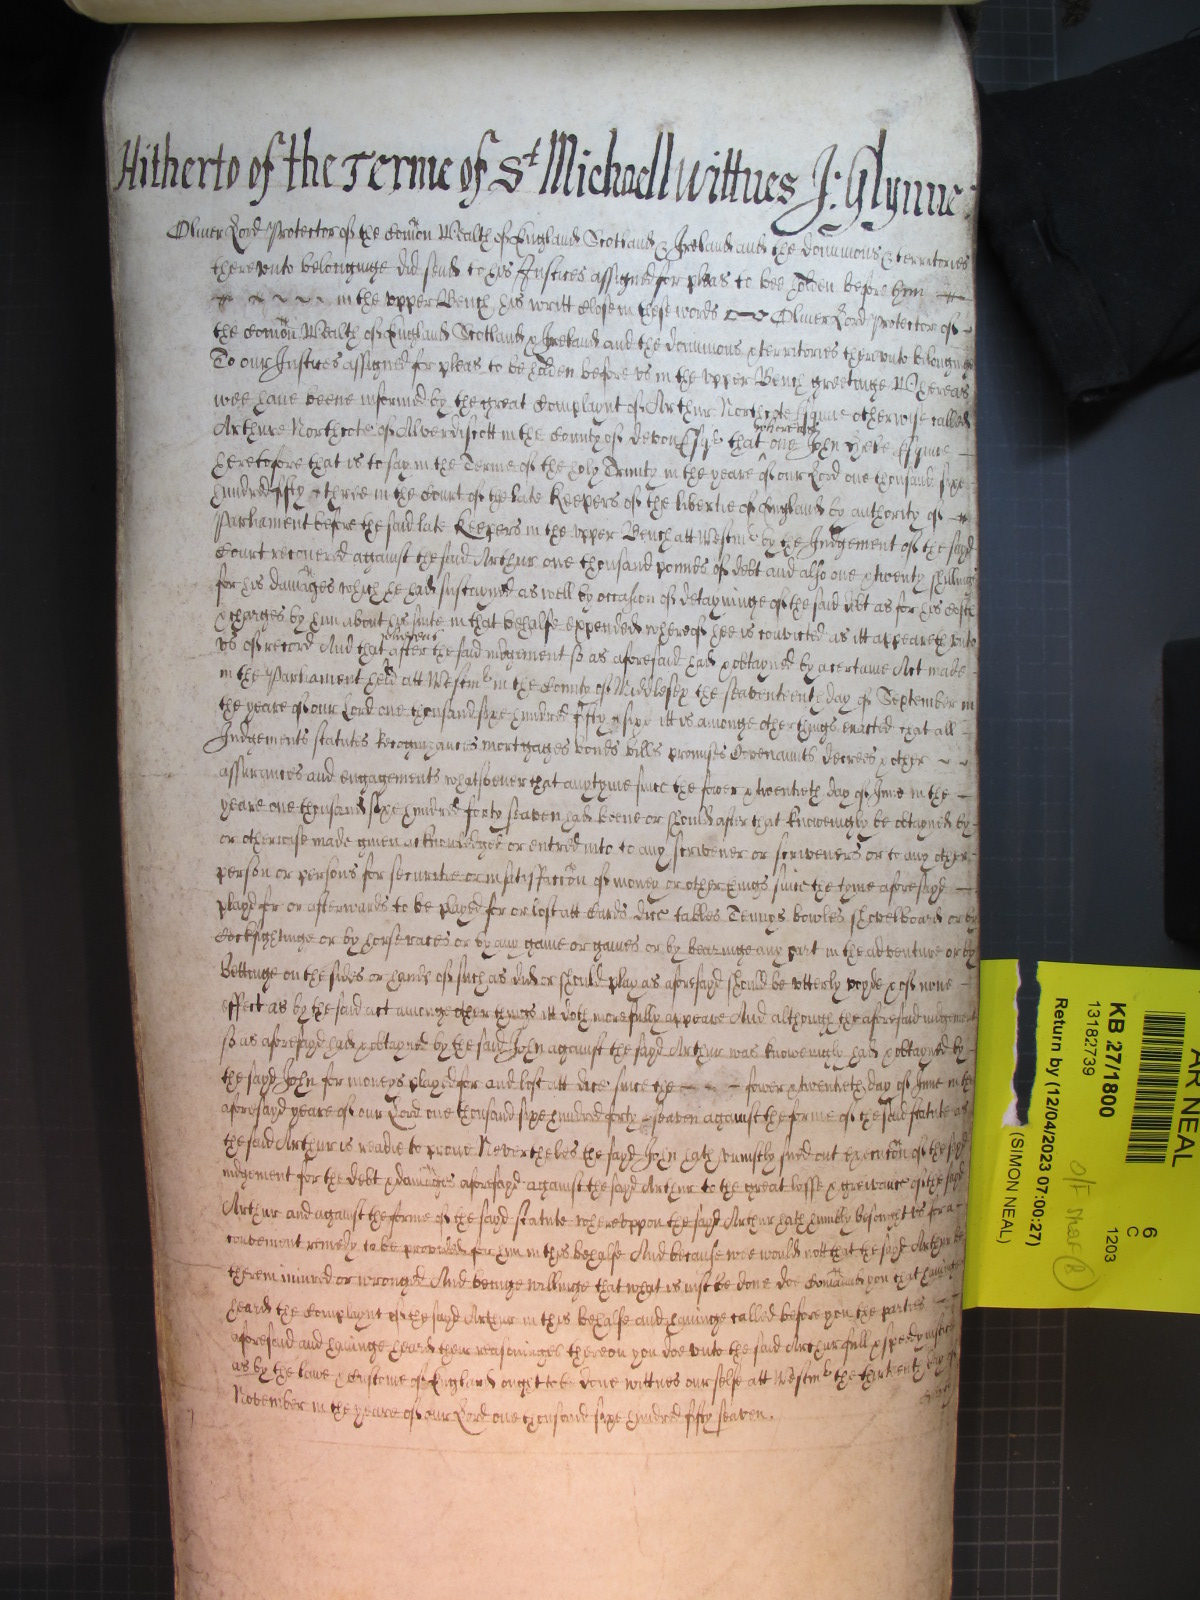 Hitherto of the Terme of St Michaell Wittnes J: Glynne
Oliver Lord Protector of the Comōn Wealth of England Scotland & Ireland and the dominions & territories
therevnto belonginge did send to his Justices assigned for pleas to bee holden before him
in the vpper Bench his writt Close in these words Oliver Lord Protector of
the Comōn Wealth of England Scotland & Ireland and the dominions & territories therevnto belonginge
To our Justices assigned for pleas to be holden before vs in the vpper Bench greetinge Whereas
wee haue beene informed by the great Complaynt of Arthur Northcote Esquire otherwise called
Arthure Northcote of Alverdiscott in the County of devon Esqr that one John Esquire
heretofore that is to say in the Terme of the holy Trinity in the yeare of our Lord one thousand sixe
hundred fifty & three in the Court of the late Keepers of the libertie of England by authority of
Parliament before the said late Keepers in the vpper Bench att Westmr by the Judgement of the sayd
Court recouered against the said Arthur one thousand pounds of debt and also one & twenty shillings
for his damages which he had sustayned as well by occasion of detayninge of the said debt as for his costs
& charges by him about his suite in that behalfe expended whereof hee is convicted as itt appeareth vnto
vs of record And that after the said iudgement so as aforesaid had & obtayned by a certaine Act made
in the Parliament held att Westmr in the County of Middlesex the seaventeenth day of September in
the yeare of our Lord one thousand sixe hundred fifty & sixe itt is amonge other things enacted that all
Judgements statutes Recognizances mortgages bonds bills promises Covenants decrees & other
assurances and engagements whatsoeuer that anytyme since the fower & twentieth day of June in the
yeare one thousand sixe hundred forty seaven had beene or should after that knoweingly be obtayned by
or otherwise made giuen acknowledged or entred into to any scrivener or scriveners or to any other
person or persons for securitie or in satisfaccōn of money or other things since the tyme aforesayd
playd for or afterwards to be played for or lost att Cards dice tables Tennys bowles shovelboard or by
Cockfightinge or by horse races or by any game or games or by bearinge any part in the adventure or by
Bettinge on the sides or hands of such as did or should play as aforesayd should be vtterly voyde & of none
effect as by the said act amonge other things itt doth more fully appeare And although the aforesaid iudgement
so as aforesayd had & obtayned by the said John against the sayd Arthur was knoweingly had & obtayned by
the sayd John for moneys played for and lost att dice since the fower & twentieth day of June in the
aforesayd yeare of our Lord one thousand sixe hundred forty & seaven against the forme of the said statute as
the said Arthur is readie to proue Neverthelesse the sayd John hath vniustly sued out execucōn of the sayd
iudgement for the debt & damages aforesayd against the sayd Arthur to the great losse & greivance of the sayd
Arthur and against the forme of the sayd statute wherevppon the sayd Arthur hath humbly besought vs for a
convenient remedy to be provided for him in this behalfe And because wee would nott that the sayd Arthur be
therein iniured or wronged And beinge willinge that what is iust be done doe Comānd you that hauinge
heard the Complaynt of the sayd Arthur in this behalfe and hauinge called before you the parties
aforesaid and hauinge heard their reasoninges thereon you doe vnto the said Arthur full & speedy iustice
as by the lawe & custome of England ought to be done wittnes our selfe att Westmr the thirteenth day of
November in the yeare of our Lord one thousand sixe hundred fifty seaven.
AR NEAL
KB 27/1800
13182739
Return by (12/04/2023 07:00:27)
(SIMON NEAL)
6
C
1203